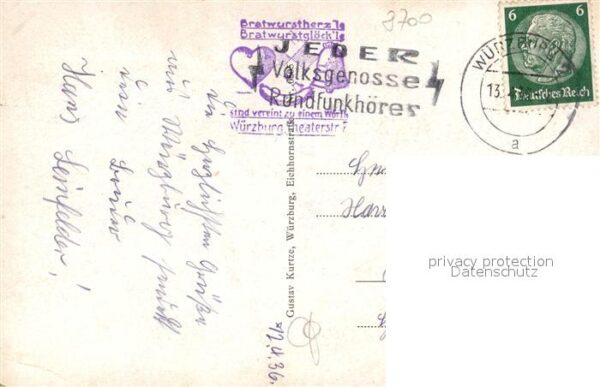 Bratwurstherz'le
Bratwurstglöck'le
sind vereint zu einem Wirt
Würzburg, Theaterstr. 7
3700
JEDER
Volksgenosse
Rundfunkhörer
WÜRZBURG
13.
a
6 6
Deutsches Reich
Die herzlichsten Grüße
aus Würzburg sendet
Hans
Gustav Kurtze, Würzburg, Eichhornstraße
12.4.36.
privacy protection
Datenschutz